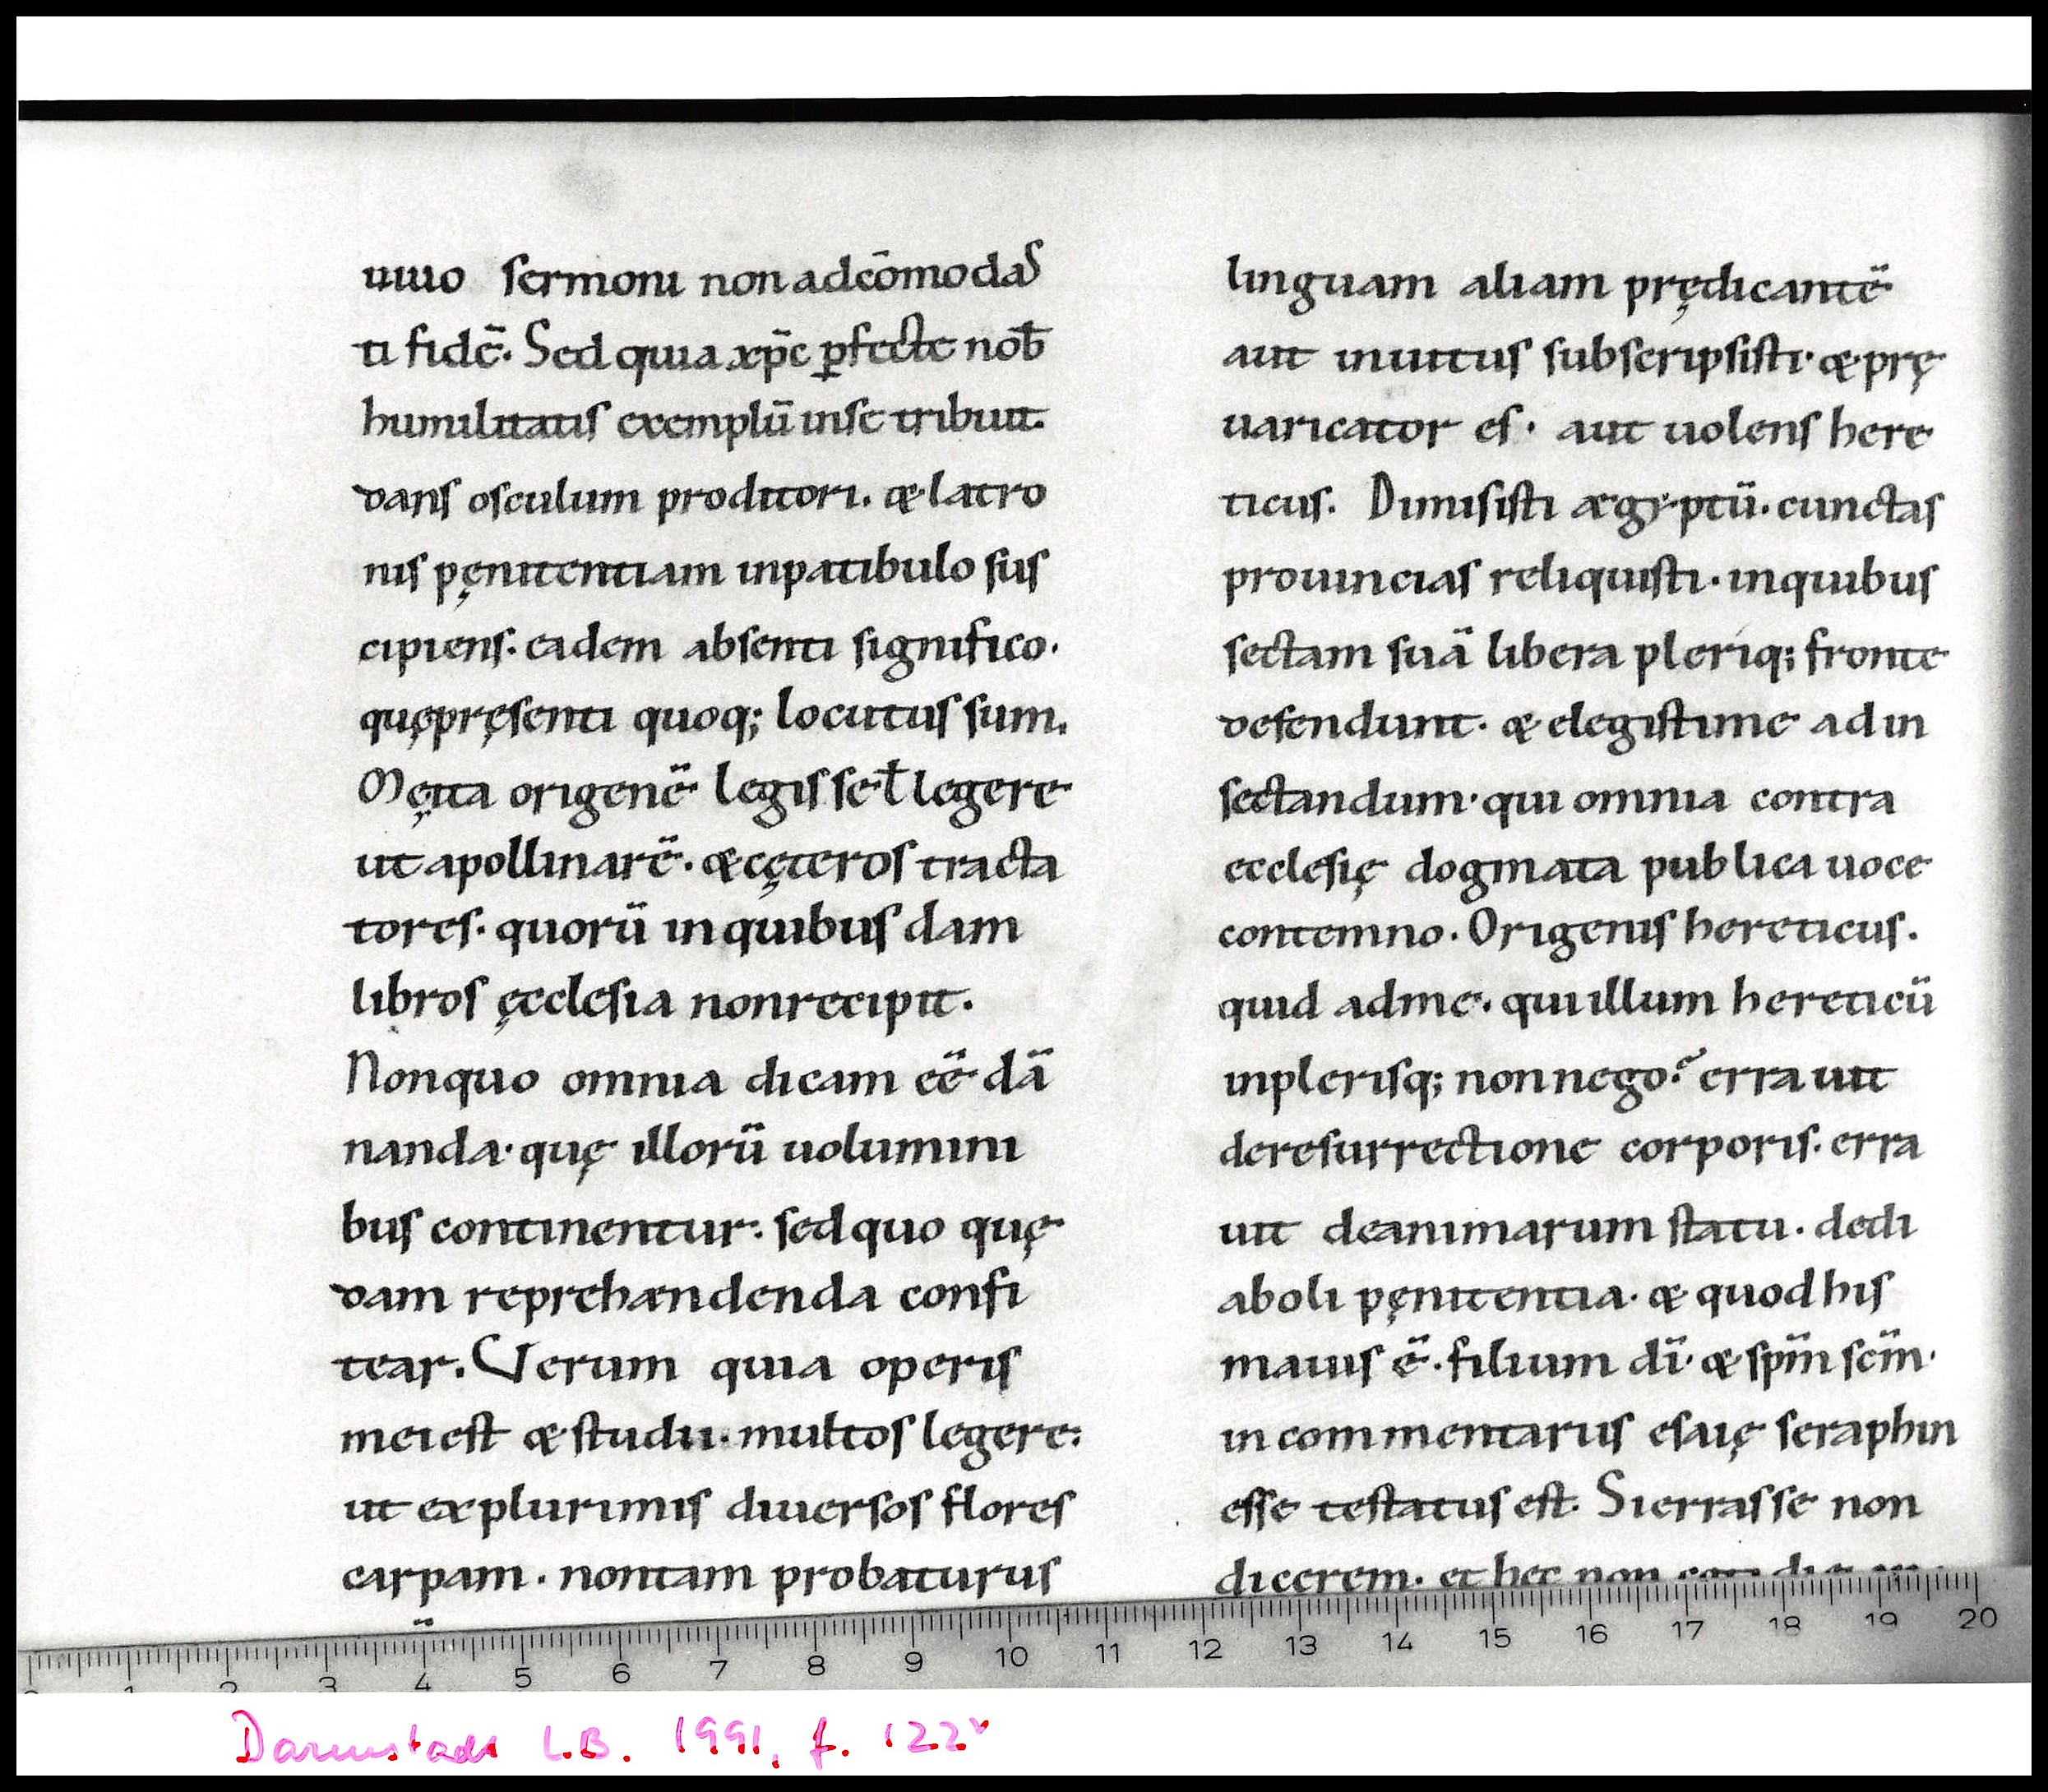 uiuo sermoni non adcōmodas
ti fidē. Sed quia xp̄c ꝑfecte nob̄
humilitatis exemplū inse tribuit.
dans osculum proditori. & latro
nis pęnitentiam inpatibulo sus
cipiens. eadem absenti significo.
quępręsenti quoq; locutus sum.
Męita origenē legisse ł legere
ut apollinarē. & cęteros tracta
tores. quorū in quibusdam
libros ęcclesia nonrecipit.
Nonquo omnia dicam eē dā
nanda. quę illorū uolumini
bus continentur. sed quo quę
dam repreh&ndenda confi
tear. Verum quia operis
mei est & studii. multos legere.
ut explurimis diuersos flores
carpam. nontam probaturus
linguam aliam prędicantē
aut inuitus subscripsisti. & prę
uaricator es. aut uolens here
ticus. Dimisisti ægyptū. cunctas
prouincias reliquisti. inquibus
sectam suā libera pleriq; fronte
defendunt. & elegistime ad in
sectandum. qui omnia contra
ecclesię dogmata publica uoce
contemno. Origenis hereticus.
quid adme. qui illum hereticū
inplerisq; nonnego. errauit
deresurrectione corporis. erra
uit deanimarum statu. de di
aboli pęnitentia. & quod his
maius ē. filium dī. & spm̄ scm̄.
in commentariis esaię seraphin
esse testatus est. Si errasse non
dicerem. et hec non
0 1 2 3 4 5 6 7 8 9 10 11 12 13 14 15 16 17 18 19 20
Darmstadt L.B. 1991, f. 122v